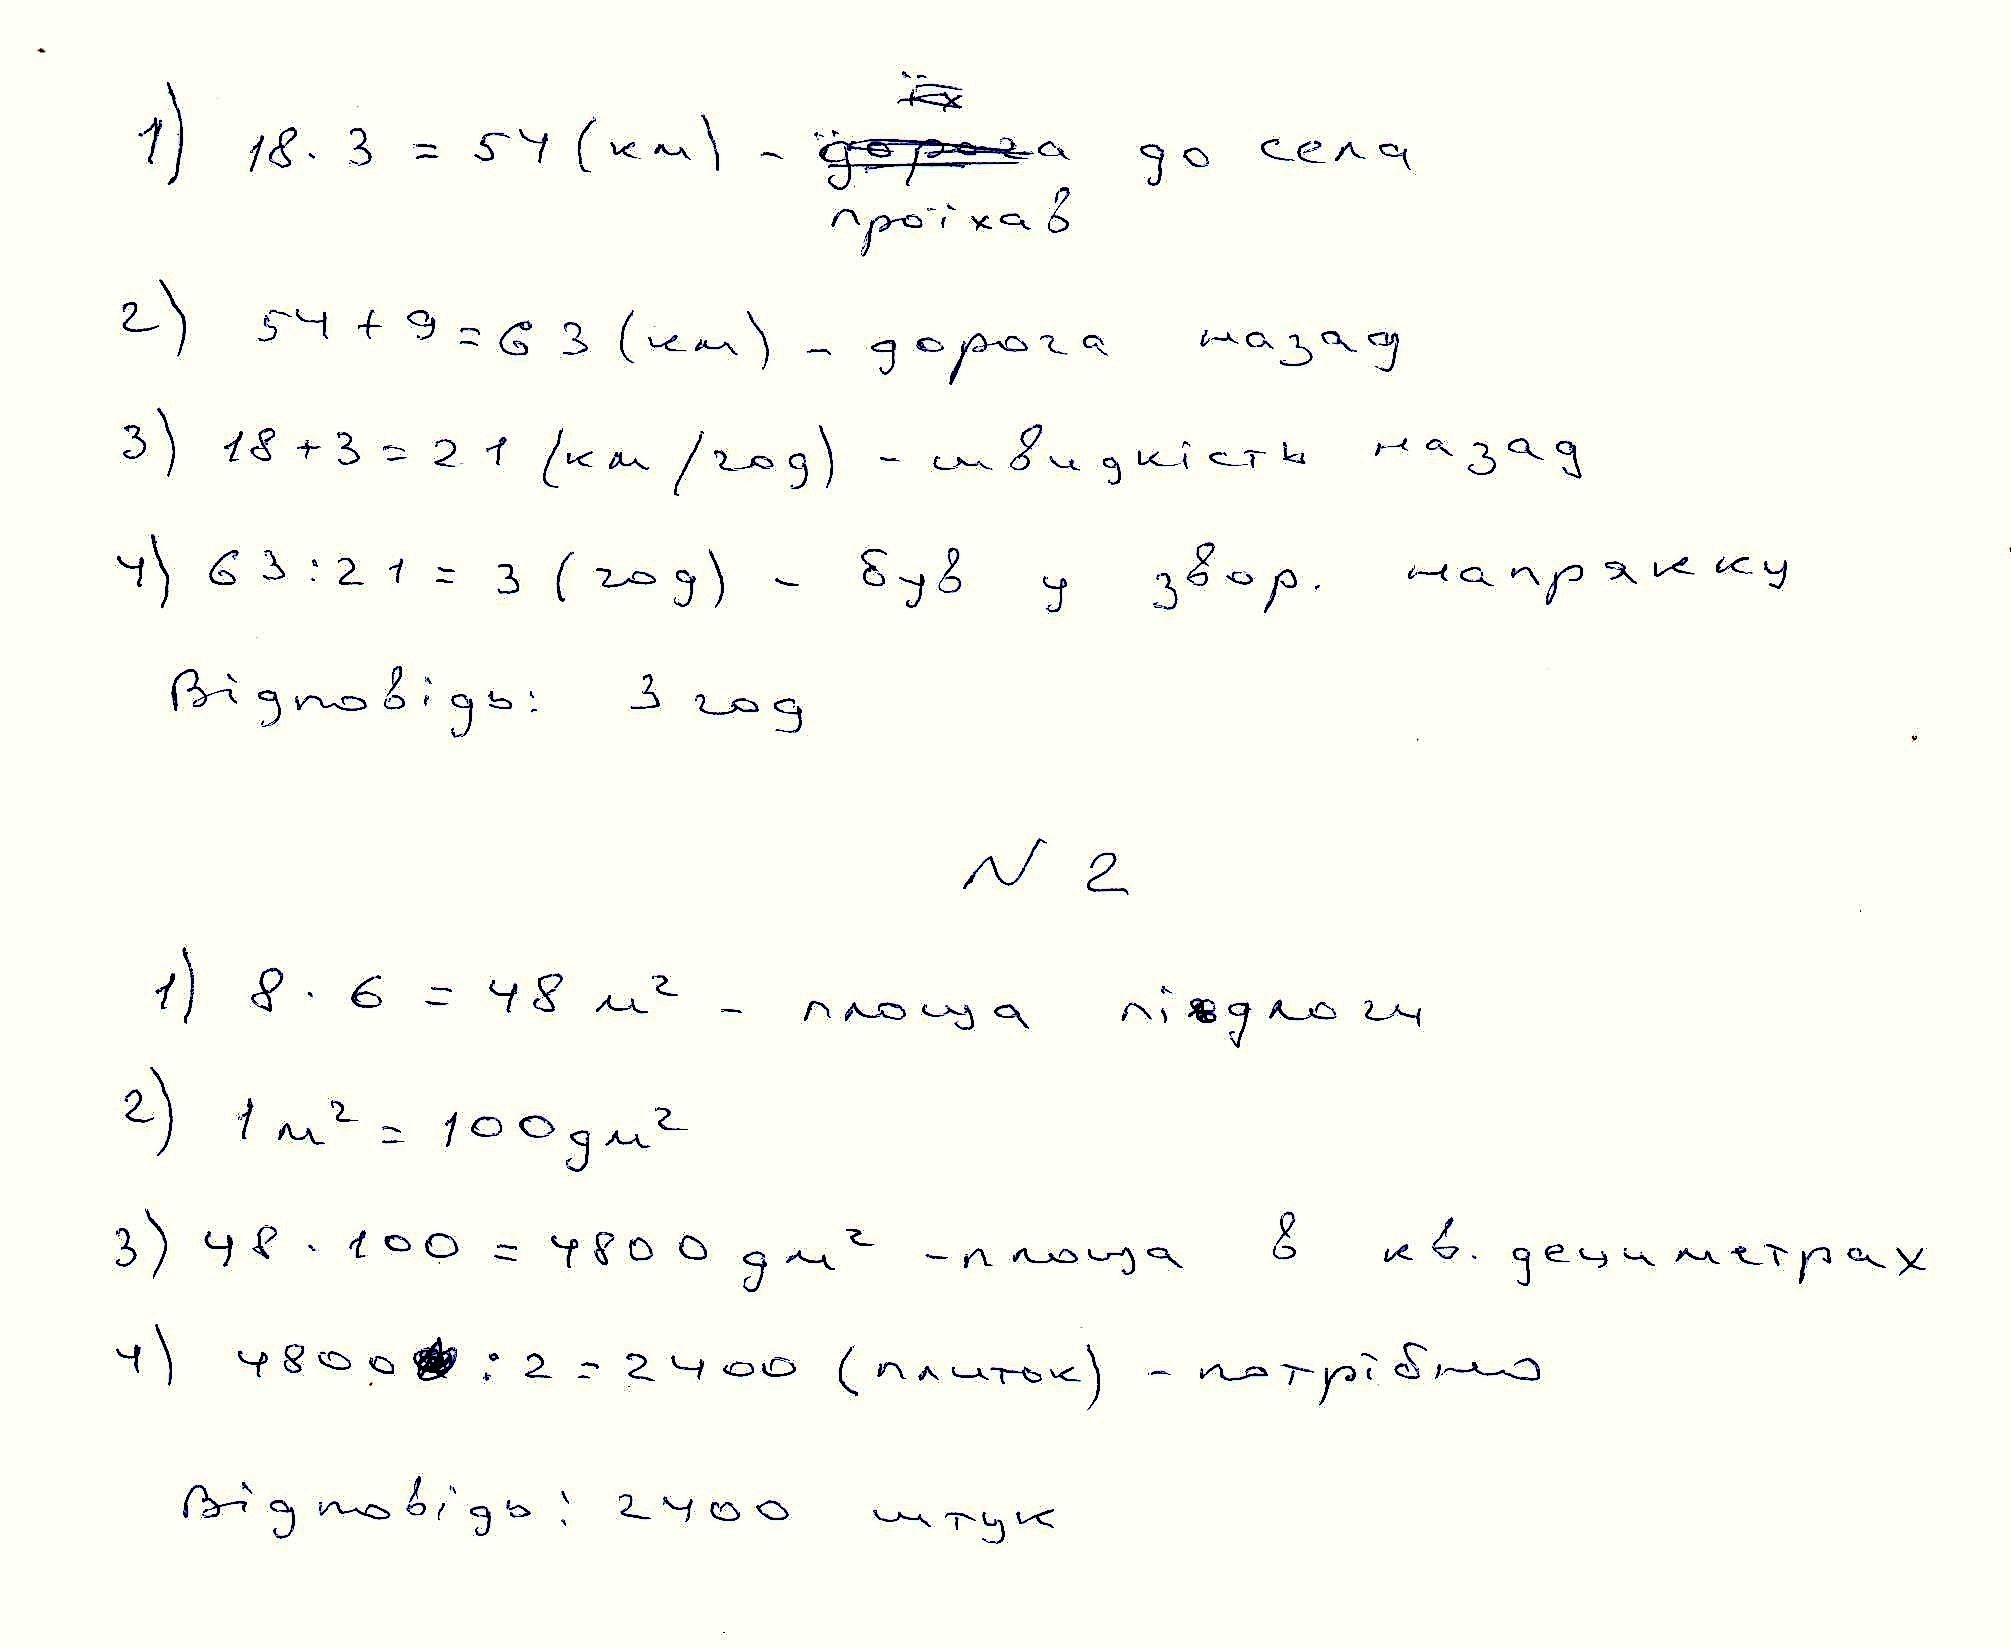 1) 18 · 3 = 54 (км) - до села
проїхав
2) 54 + 9 = 63 (км) - дорога назад
3) 18 + 3 = 21 (км/год) - швидкість назад
4) 63 : 21 = 3 (год) - був у звор. напрямку
Відповідь: 3 год
N 2
1) 8 · 6 = 48 м² - площа підлоги
2) 1 м² = 100 дм²
3) 48 · 100 = 4800 дм² - площа в кв. дециметрах
4) 4800 : 2 = 2400 (плиток) - потрібно
Відповідь: 2400 штук